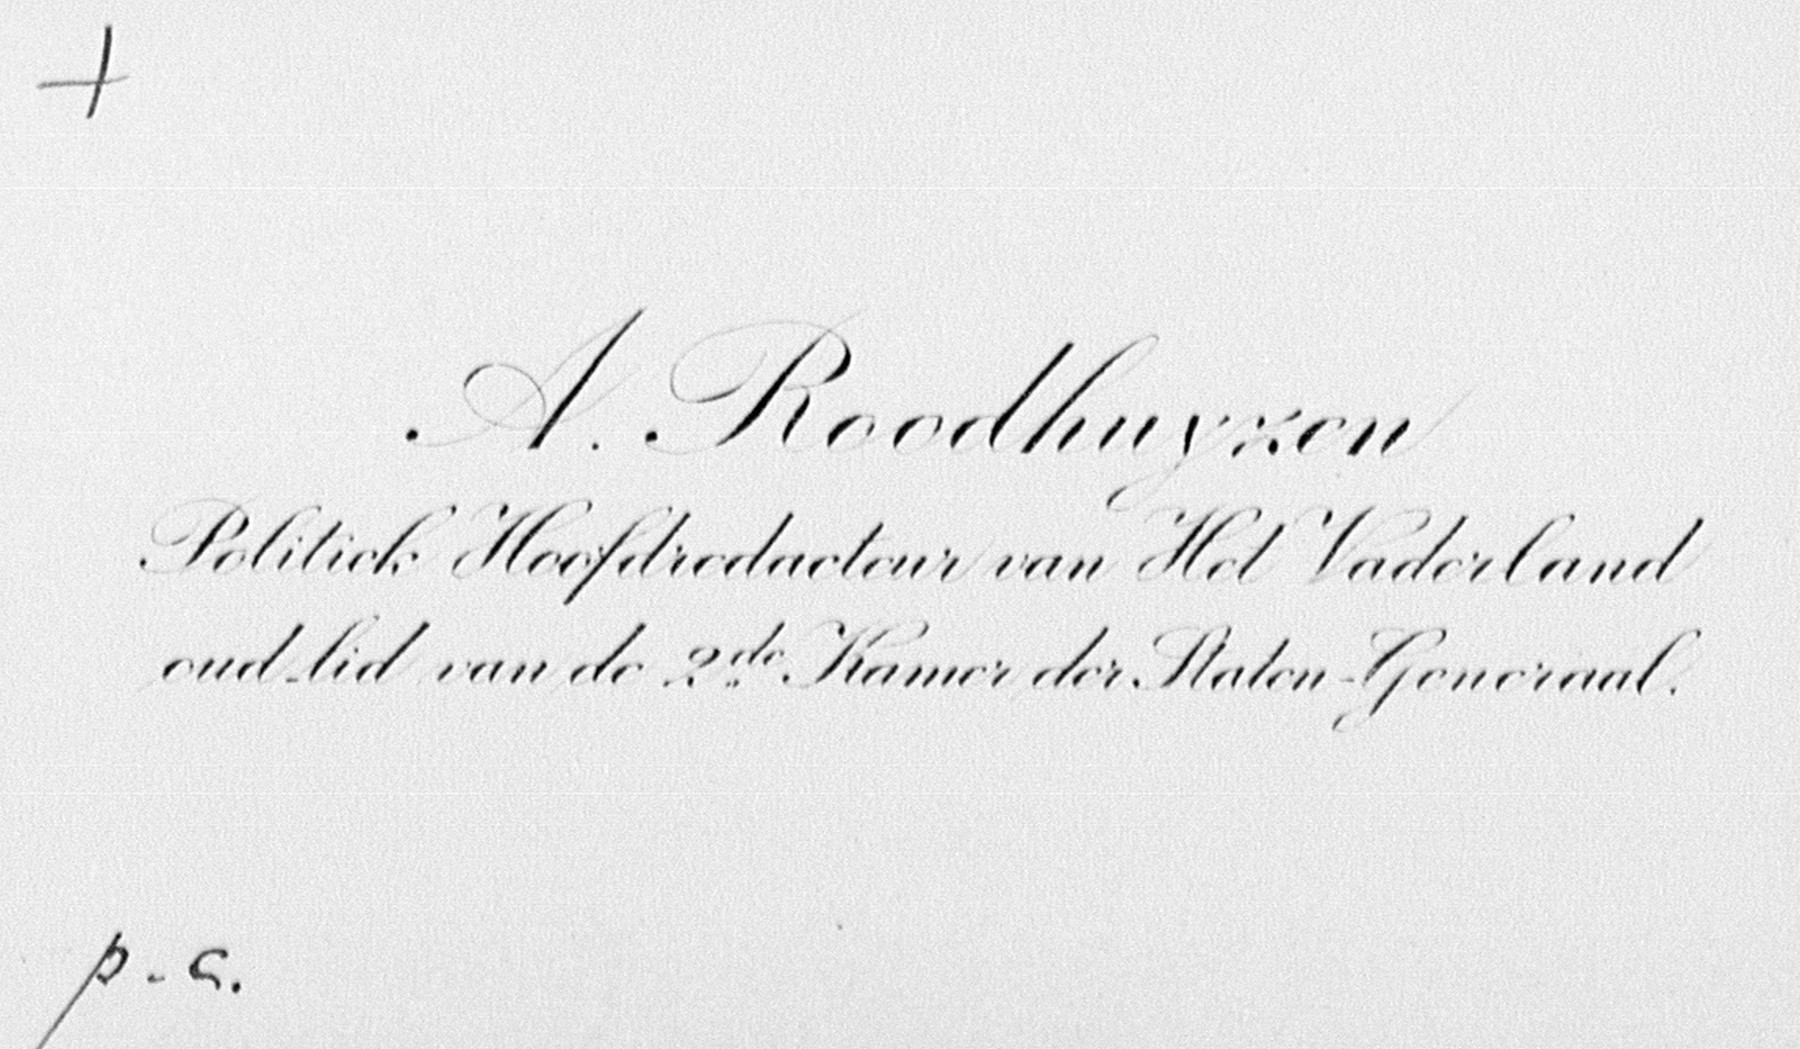 +
A. Roodhuyzen
Politiek Hoofdredacteur van Het Vaderland
oud-lid van de 2de Kamer der Staten-Generaal.
p.c.